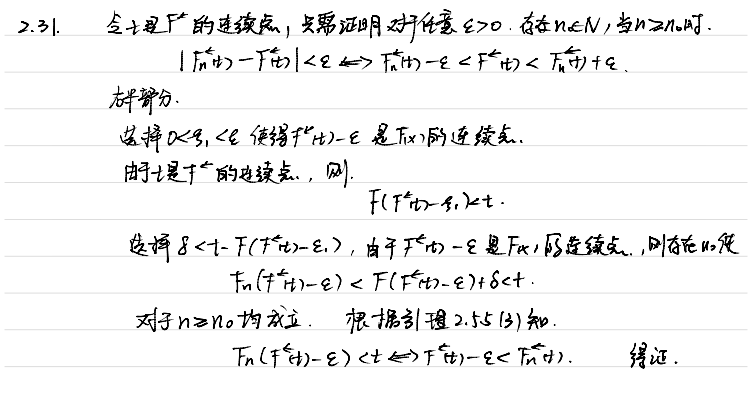 2.31. 令t是F^← 的连续点, 只需证明对于任意 ε>0. 存在n₀∈N, 当n≥n₀时.
|Fn^←(t)-F^←(t)|<ε ⟺ Fn^←(t)-ε < F^←(t) < Fn^←(t)+ε.
右半部分.
选择 0<ε₁<ε 使得F^←(t)-ε 是F(x)的连续点.
由于t是F^←的连续点, 则.
F(F^←(t)-ε₁)<t.
选择 δ<t-F(F^←(t)-ε₁), 由于 F^←(t)-ε 是F(x)的连续点, 则存在n₀使
Fn(F^←(t)-ε) < F(F^←(t)-ε)+δ<t.
对于n≥n₀均成立. 根据引理2.55(3)知.
Fn(F^←(t)-ε)<t ⟺ F^←(t)-ε< Fn^←(t). 得证.